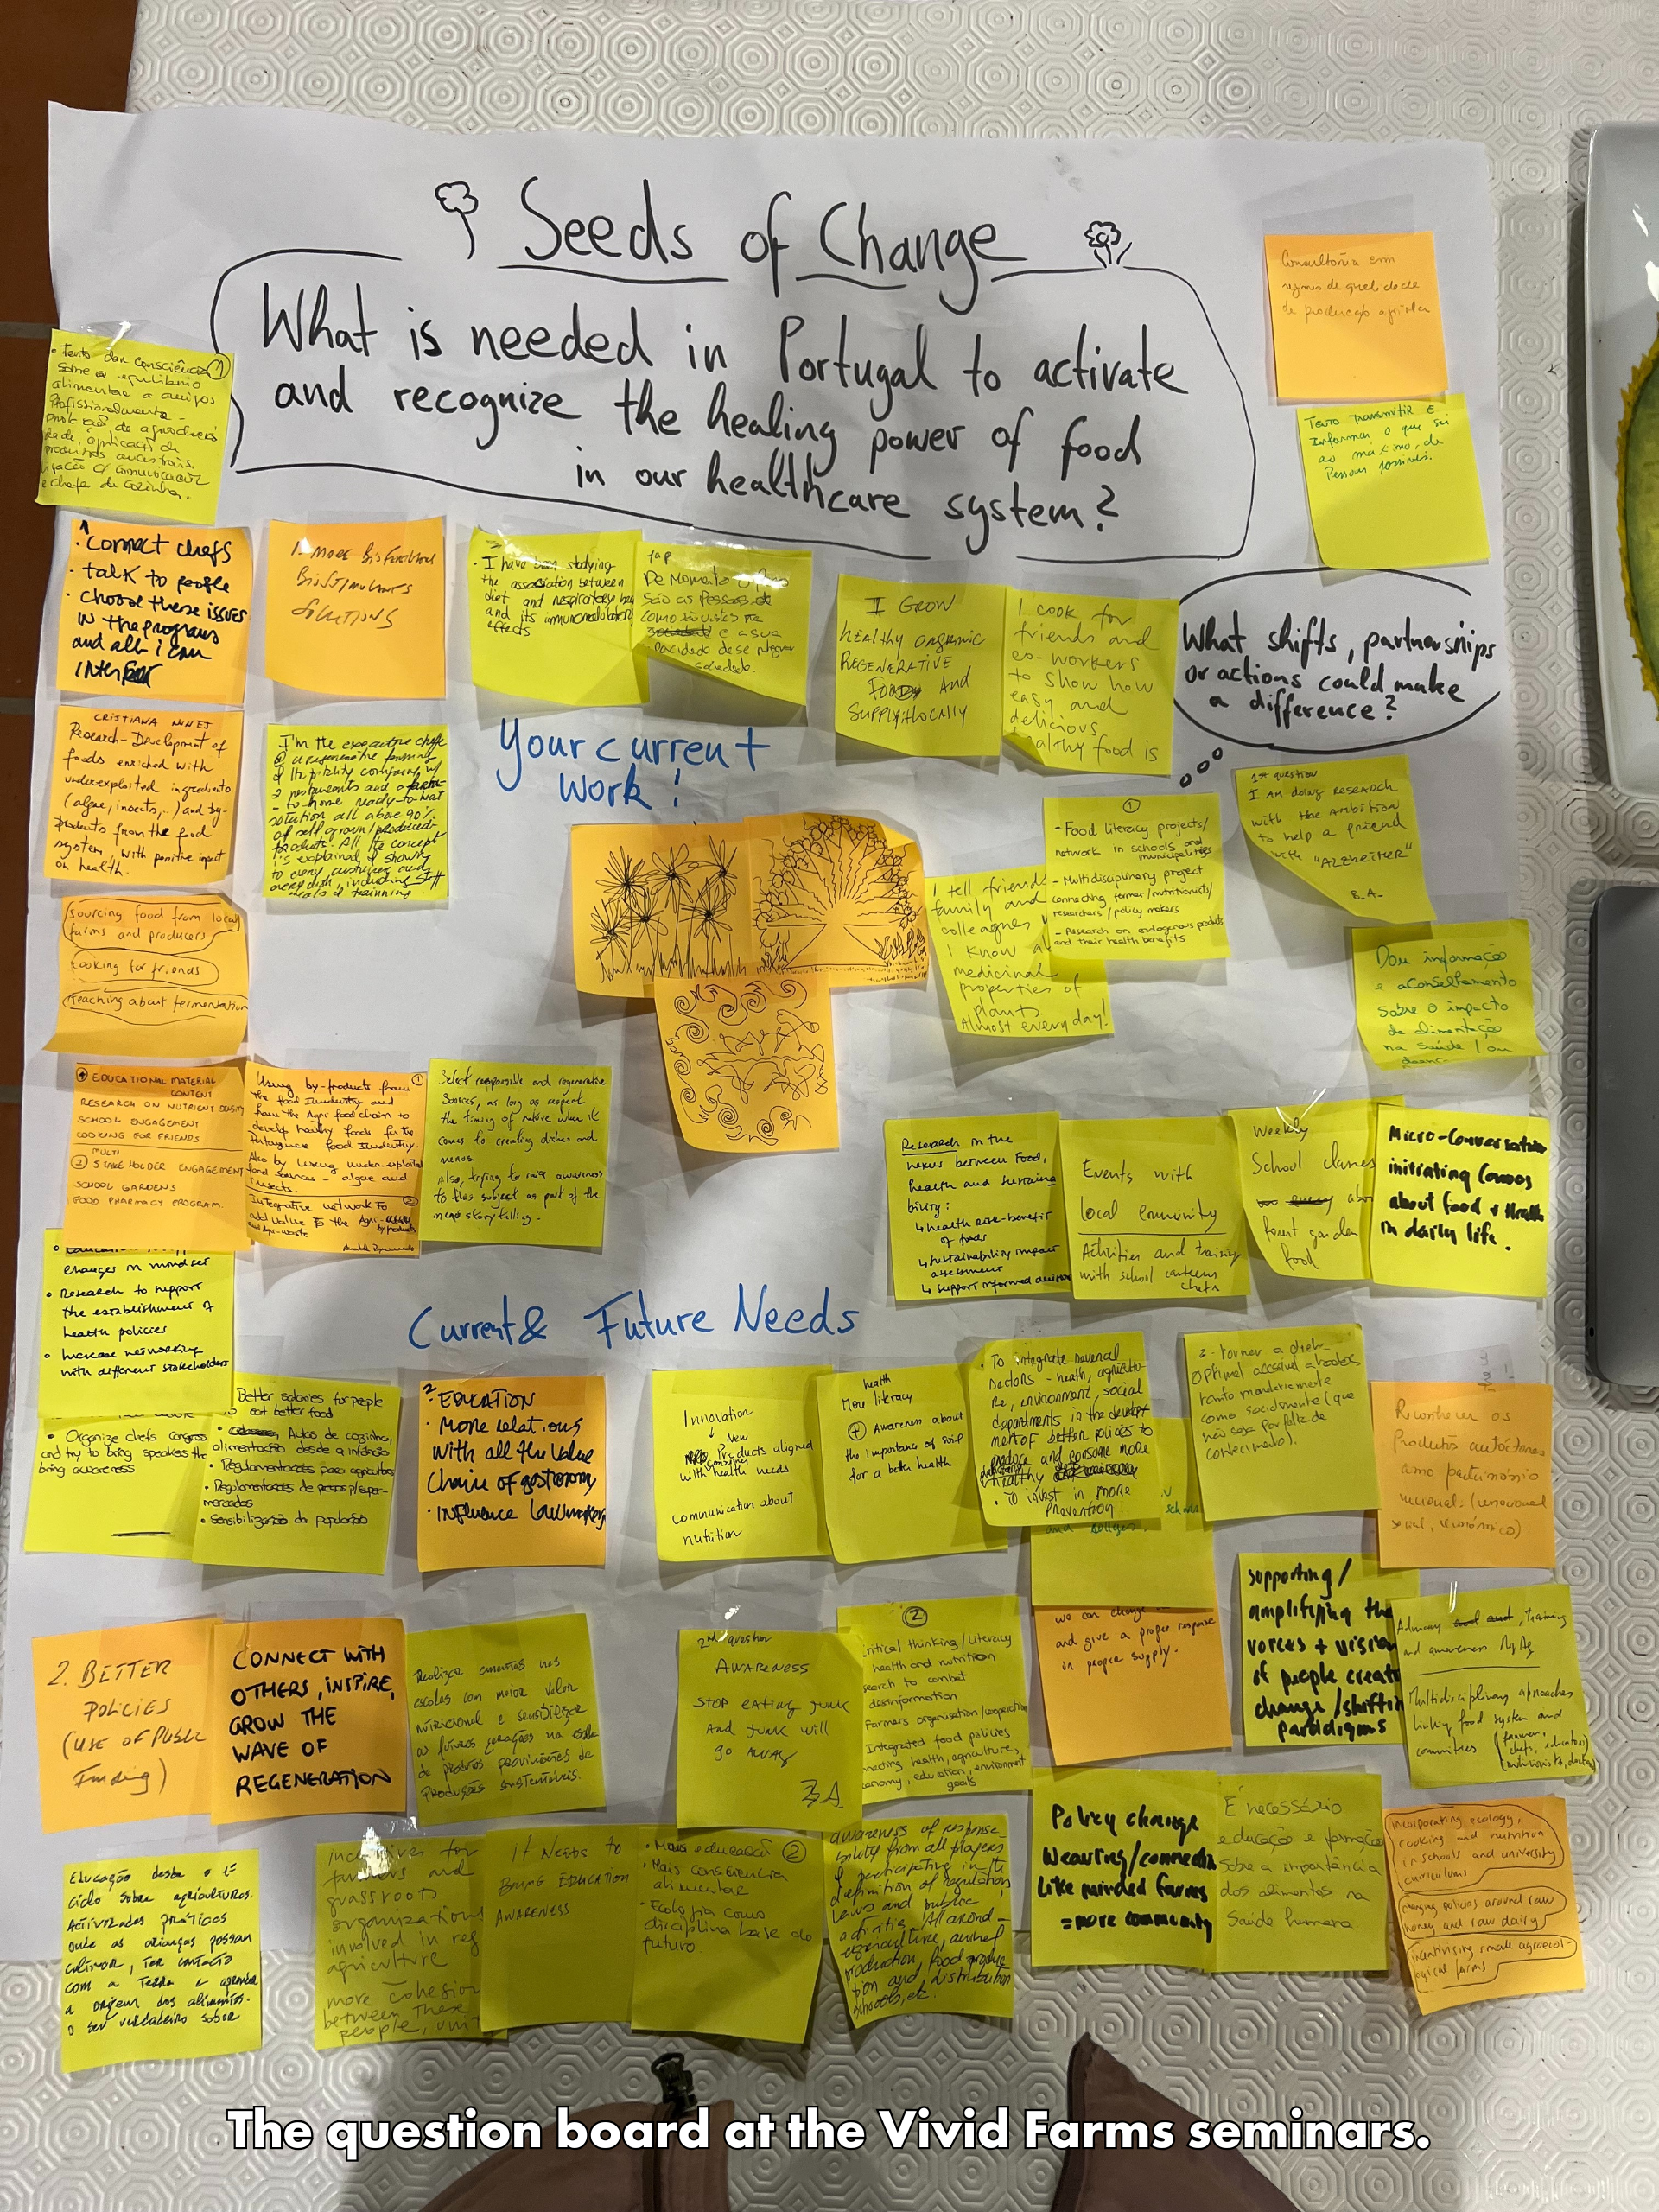 Seeds of Change
What is needed in Portugal to activate
and recognize the healing power of food
in our healthcare system?
What shifts, partnerships
or actions could make
a difference?
Consultoria em
regimes de qualidade
de produção agrícola
Tento transmitir e
informar o que sei
ao máximo de
Pessoas possíveis.
• Tento dar consciência
sobre o equilíbrio
alimentar a amigos
Profissionalmente -
produtos ancestrais.
chefs de cozinha.
1
• connect chefs
• talk to people
• choose these issues
in the programs
and all i can
1. More
Biostimulants
Solutions
• I have been studying
the association between
diet and respiratory
and its immunomodulatory
effects
De momento
são as pessoas
I GROW
HEALTHY ORGANIC
REGENERATIVE
FOOD AND
SUPPLY LOCALLY
I cook for
friends and
co-workers
to show how
easy and
delicious
healthy food is
Your current
work!
CRISTIANA NUNES
Research-Development of
foods enriched with
underexploited ingredients
(algae, insects,...) and by-
products from the food
system, with positive impact
on health.
I'm the executive chef
@ a regenerative farming
& hospitality company w/
2 restaurants and a farm-
-to-home ready-to-heat
solution all above 90%
of self grown/produced
products. All the concept
is explained & shown
to every customer and
every dish, including staff
meals & training
1
- Food literacy projects/
network in schools and
municipalities
- Multidisciplinary project
connecting farmer/nutritionists/
researchers/policy makers
- Research on endogenous products
and their health benefits
1st question
I AM doing RESEARCH
with the AMBITION
to help a friend
with "ALZHEIMER"
B.A.
I tell friends
family and
colleagues
I know a
medicinal
properties of
plants.
Almost every day!
Dou informação
e aconselhamento
sobre o impacto
da alimentação
na saúde / ou
sourcing food from local
farms and producers
cooking for friends
teaching about fermentation
EDUCATIONAL MATERIAL
CONTENT
RESEARCH ON NUTRIENT DENSITY
SCHOOL ENGAGEMENT
COOKING FOR FRIENDS
MULTI
2 STAKEHOLDER ENGAGEMENT
SCHOOL GARDENS
FOOD PHARMACY PROGRAM.
1
Using by-products from
the food Industry and
from the Agri food chain to
develop healthy foods for the
Portuguese food Industry.
Also by using under-exploited
food sources - algae and
insects.
2
Integrative network to
add value to the Agri-
by products
and Agri-waste
Select responsible and regenerative
sources, as long as respect
the timing of nature when it
comes to creating dishes and
menus.
Also, trying to raise awareness
to this subject as part of the
menu story telling.
Research in the
nexus between Food,
health and sustaina
bility:
↳ health risk-benefit
of foods
↳ sustainability impact
assessment
↳ support informed
Events with
local community
Activities and training
with school canteen
chefs
Weekly
School classes
forest garden
food
Micro-Conversations
initiating convos
about food + Health
in daily life.
Current & Future Needs
changes in mindset
• Research to support
the establishment of
health policies
• Increase networking
with different stakeholders
• Organize chefs congress
and try to bring speakers
bring awareness
Better salaries for people
to eat better food
• Aulas de cozinha,
alimentação desde a infância
• Regulamentações para agricultores
• Regulamentações de preços p/ super-
mercados
• Sensibilização da população
2
• EDUCATION
• More relations
with all the value
chain of gastronomy
• influence lawmakers
Innovation
↓ New
Products aligned
with health needs
communication about
nutrition
health
More literacy
+ Awareness about
the importance of soil
for a better health
• To integrate
sectors - health, agricultu-
re, environment, social
departments in the develop
ment of better policies to
produce and consume more
healthy
• To invest in more
Prevention.
and colleges.
2 - Tornar a dieta
optimal acessível a todos
tanto monetariamente
como socialmente (que
não seja por falta de
conhecimento).
Reconhecer os
produtos autóctones
como património
nacional.
we can change
and give a proper response
in proper supply.
supporting/
amplifying the
voices + vision
of people creat
change/shifting
paradigms
Advocacy, training
and awareness
Multidisciplinary approaches
linking food system and
(farmers,
chefs, educators,
nutritionists,
2. BETTER
POLICIES
(USE OF PUBLIC
Funding)
CONNECT WITH
OTHERS, INSPIRE,
GROW THE
WAVE OF
REGENERATION
Realizar ementas nas
escolas com maior valor
nutricional e sensibilizar
as futuras gerações na
de produtos provenientes de
produções sustentáveis.
2nd question
AWARENESS
STOP EATING JUNK
And junk will
go AWAY
B.A
2
critical thinking/literacy
health and nutrition
search to combat
desinformation
Farmers organisation/cooperation
Integrated food policies
health, agriculture,
economy, education, environment
goals
Policy change
Weaving/connecting
Like minded farms
= more community
É necessário
educação e formação
sobre a importância
dos alimentos na
Saúde humana.
incorporating ecology,
cooking and nutrition
in schools and university
curriculums
changing policies around raw
honey and raw dairy
incentivising small agroecol-
ogical farms
Educação desde o 1º
ciclo sobre agricultura.
Actividades práticas
onde as crianças possam
cultivar, ter contacto
com a terra e aprender
a origem dos alimentos.
o seu verdadeiro sabor
incentives for
farmers and
grassroots
organizations
involved in reg
agriculture
more cohesion
between these
people,
It NEEDS to
BRING EDUCATION
AWARENESS
2
• Mais educação
• Mais consciência
alimentar
• Ecologia como
disciplina base do
futuro
awareness of response-
bility from all players
& participative in the
definition of regulation,
laws and public
activities. All around -
agriculture, animal
production, food produc
tion and distribution
schools, etc.
The question board at the Vivid Farms seminars.